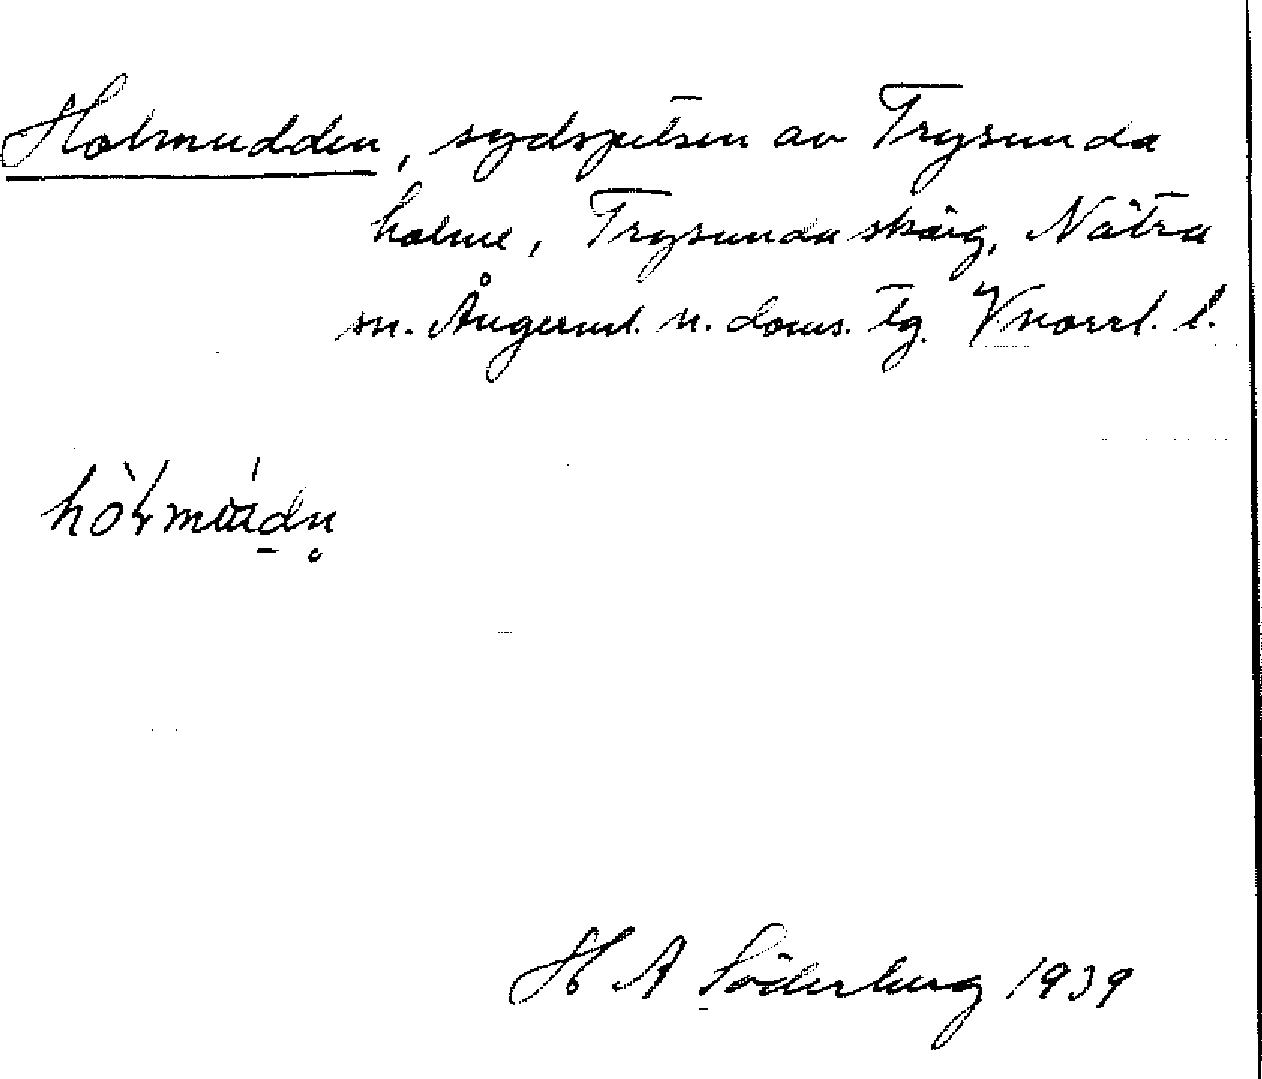 Holmudden, sydspetsen av Trysunda
holme, Trysunda skärg, Nätra
sn. Ångerml. n. doms. tg. Vnorrl. l.
H A Söderberg 1939